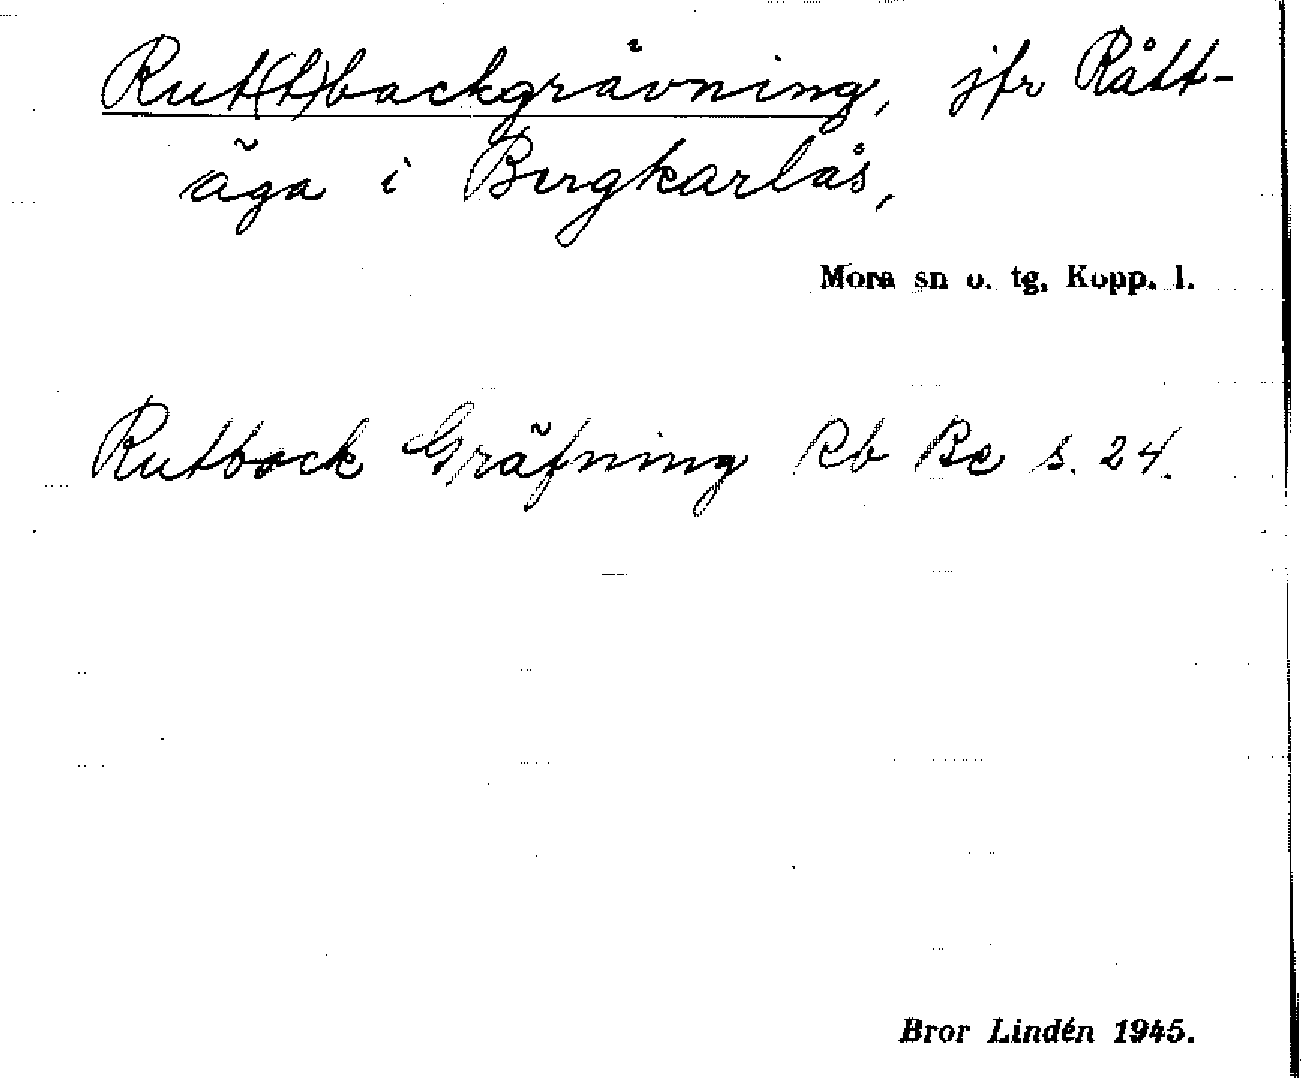 Rut(t)backgrävning, jfr Rått-
äga i Bergkarlås,
Mora sn o. tg, Kopp. l.
Rutback Gräfning Rb Be s. 24.
Bror Lindén 1945.